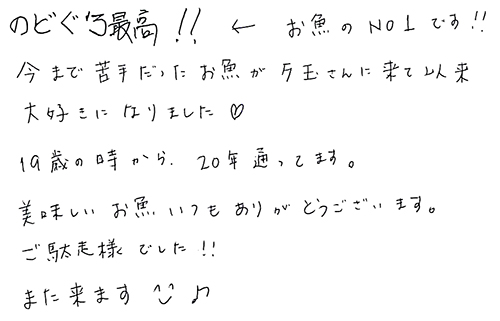 のどぐろ最高!! ← お魚のNO1です!!
今まで苦手だったお魚が夕玉さんに来て以来
大好きになりました♡
19歳の時から、20年通ってます。
美味しいお魚いつもありがとうございます。
ご馳走様でした!!
また来ます ♪